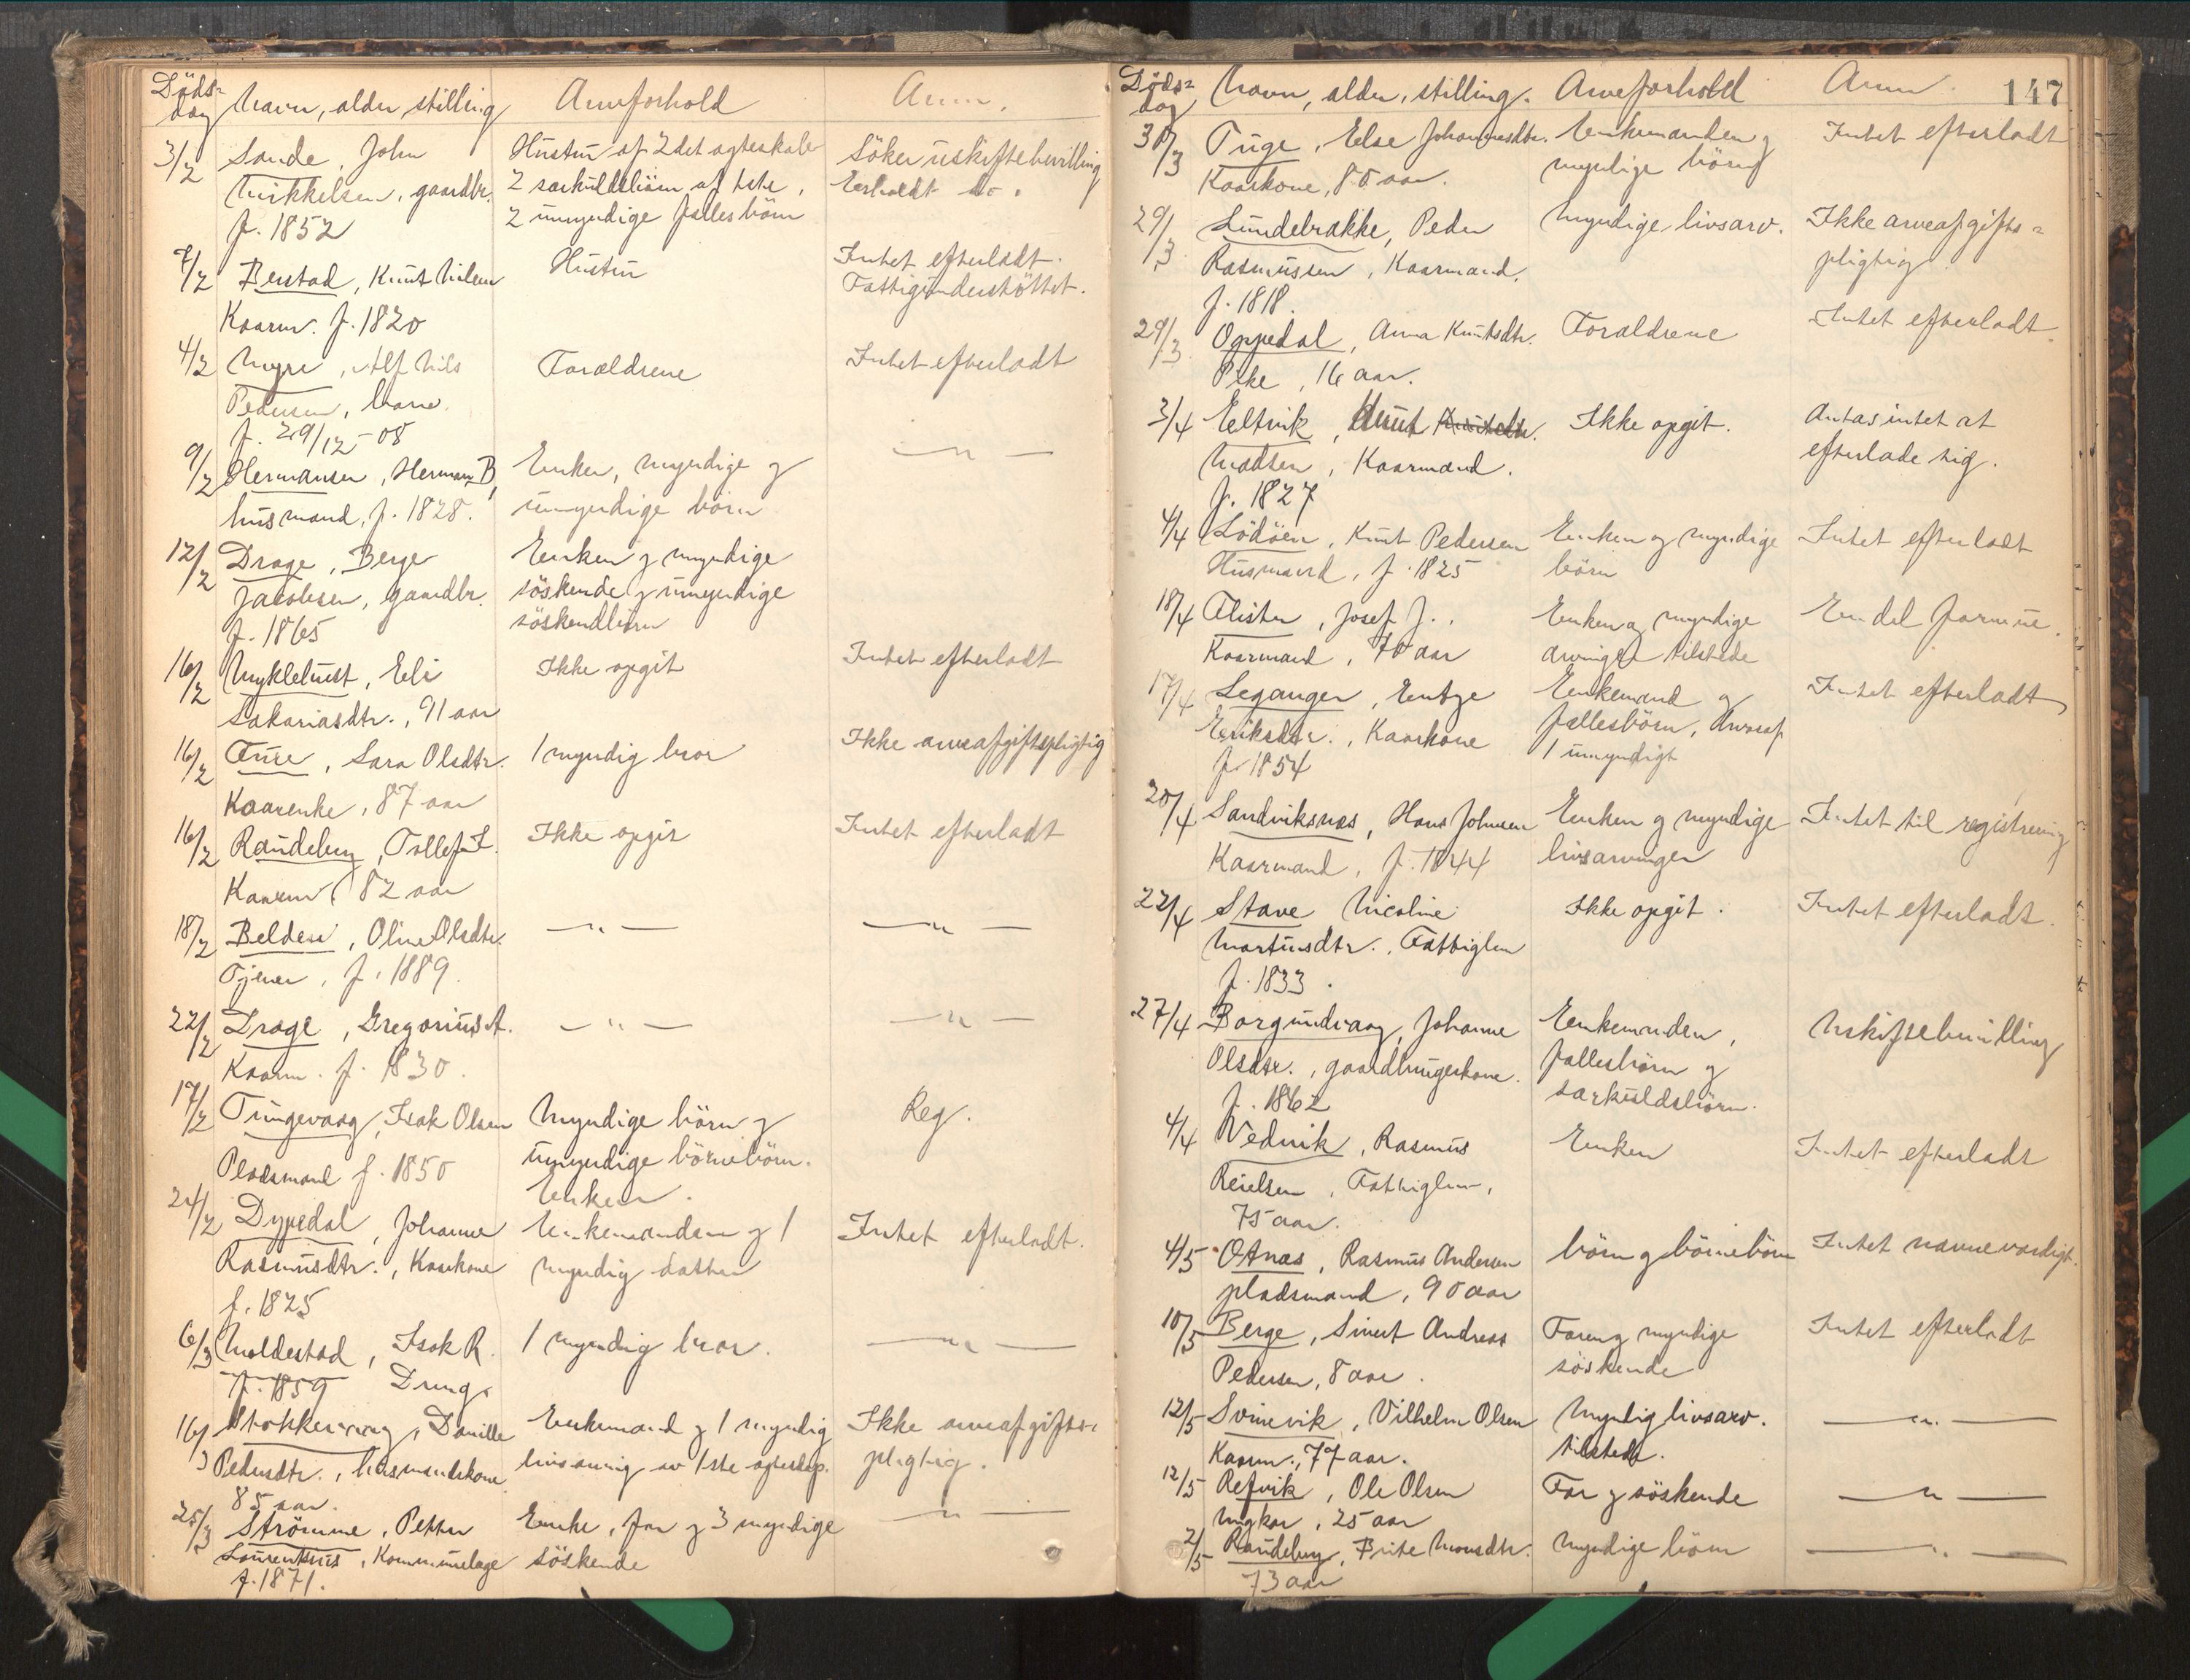 Döds=
dag Navn, alder, stilling Arveforhold Anm.
3/2 Sande, John Hustru af 2det ægteskab Söker uskiftebevilling
Mikkelsen, gaardbr. 2 særkuldsbörn af 1ste, Erholdt do.
f. 1852 2 umyndige fællesbörn
7/2 Berstad, Knut Nilsen Hustru Intet efterladt.
Fattigunderstöttet.
Kaarm. f. 1820
4/2 Myre, Alf Nils Forældrene Intet efterladt
Pedersen, barn
f. 29/12-08
9/2 Hermansen, Herman B. Enken, myndige og — " —
husmand, f. 1828. umyndige börn
12/2 Drage, Berge Enken og myndige
Jacobsen, gaardbr. söskende og umyndige
f. 1865 söskendbörn
16/2 Myklebust, Eli Ikke opgit Intet efterladt
Sakariasdtr., 91 aar
16/2 Aure, Sara Olsdtr. 1 myndig bror Ikke arveafgiftspligtig
Kaarenke, 87 aar
16/2 Raudeberg, Tollef I. Ikke opgit Intet efterladt
Kaarm, 82 aar
18/2 Belden, Oline Olsdtr. — " — — " —
Tjener, f. 1889.
22/2 Drage, Gregorius A. — " — — " —
Kaarm. f. 1830.
17/2 Tungevaag, Isak Olsen Myndige börn og Reg.
Pladsmand f. 1850 umyndige börnebörn.
Enken.
24/2 Dypedal, Johanne Enkemanden og 1 Intet efterladt.
Rasmusdtr., Kaarkone myndig datter
f. 1825
6/3 Moldestad, Isak R. 1 myndig bror. — " —
f. 1859 Dreng
16/3 Stokkevaag, Danille Enkemand og 1 myndig Ikke arveafgifts-
Pedersdtr., husmandskone livsarving av 1ste ægteskap. pligtig.
85 aar.
25/3 Strömme, Petter Enke, far og 3 myndige — " —
Laurentius, Kommunelæge söskende
f. 1871.
Döds=
dag Navn, alder, stilling. Arveforhold Anm. 147
30/3 Tuge, Else Johannesdtr. Enkemanden og Intet efterladt
Kaarkone, 80 aar. myndige börn
29/3 Lundebrække, Peder Myndige livsarv. Ikke arveafgifts=
Rasmussen, Kaarmand. pligtig
f. 1818.
29/3 Oppedal, Anna Knutsdtr. Forældrene Intet efterladt
Pike, 16 aar.
3/4 Eltvik, Knut Knutsdtr. Ikke opgit. Antas intet at
Madsen, Kaarmand. efterlade sig.
f. 1827
4/4 Lödöen, Knut Pedersen Enken og myndige Intet efterladt
Husmand, f. 1825 börn
18/4 Alister, Josef J. Enken og myndige En del formue.
Kaarmand, 70 aar arvinger tilstede
17/4 Leganger, Entze Enkemand og Intet efterladt
Eriksdtr., Kaarkone fællesbörn, hvoraf
f. 1854 1 umyndigt
20/4 Sandviksnes, Hans Johnsen Enken og myndige Intet til registrering
Kaarmand, f. 1844 livsarvinger
22/4 Stave Nicoline Ikke opgit. Intet efterladt.
Martinsdtr., Fattiglem
f. 1833.
27/4 Borgundvaag, Johanne Enkemanden, Uskiftebevilling
Olsdtr., gaardbrugerkone. fællesbörn og
f. 1862 særkuldsbörn.
4/4 Vedvik, Rasmus Enken Intet efterladt
Reielsen, Fattiglem,
75 aar.
4/5 Otnæs, Rasmus Andersen börn og börnebörn Intet nævneværdigt.
pladsmand, 90 aar
10/5 Berge, Sivert Andreas Faren og myndige Intet efterladt
Pedersen, 8 aar. söskende
12/5 Svinevik, Vilhelm Olsen Myndig livsarv. — " —
Kaarm., 77 aar. tilstede.
12/5 Refvik, Ole Olsen Far og söskende — " —
Ungkar, 25 aar
2/5 Raudeberg, Brite Monsdtr. Myndige börn — " —
73 aar